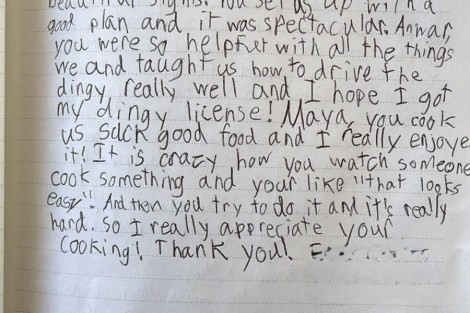 beautiful sights. You set us up with a
good plan and it was spectacular. Anwar,
you were so helpful with all the things
we and taught us how to drive the
dingy really well and I hope I got
my dingy license! Maya, you cook
us such good food and I really enjoye
it! It is crazy how you watch someone
cook something and your like "that looks
easy". And then you try to do it and it's really
hard. So I really appreciate your
cooking! Thank you!